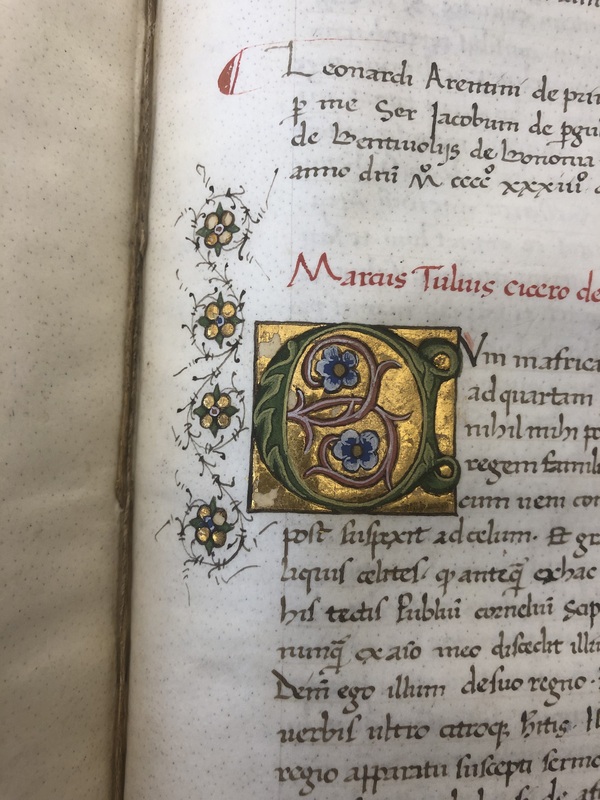 Leonardi Arentini de pri
ꝑ me Ser Jacobum de ꝑgu
de Bentiuolijs de Bononia
anno dnī Mº ccccº xxxiiiº
Marcus Tulius cicero de
CVm in africa
ad quartam
nihil mihi
regem famili
cum uem con
post suspexit ad celum. Et gr
liquis celites. qꝫ anteq̄ ex hac
his tectis Publiū corneliū Scip
nunq̄ ex aīo meo discedit illi
Deīn ego illum de suo regno.
uerbis ultro citroqꝫ hitis.
regio apparatu suscepti sermo